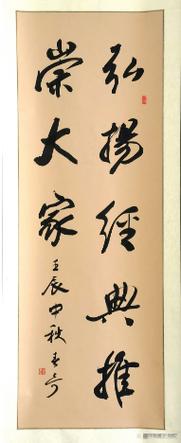 弘揚經典推
崇大家
壬辰中秋